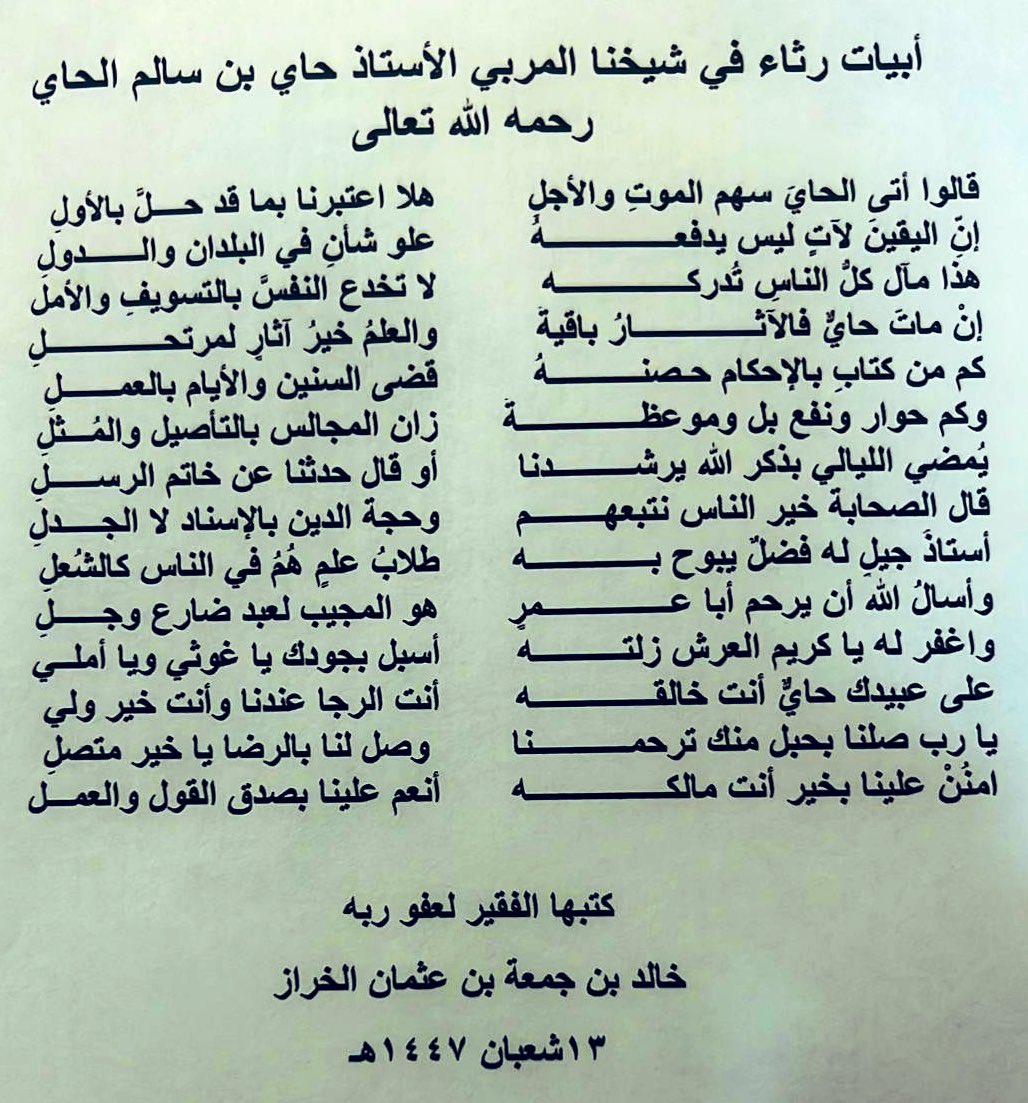 أبيات رثاء في شيخنا المربي الأستاذ حاي بن سالم الحاي
رحمه الله تعالى
قالوا أتى الحايَ سهم الموتِ والأجلِ هلا اعتبرنا بما قد حلَّ بالأولِ
إنّ اليقينَ لآتٍ ليس يدفعهُ علو شأنِ في البلدان والدولِ
هذا مآل كلُّ الناسِ تُدركه لا تخدع النفسَّ بالتسويفِ والأملِ
إنْ ماتَ حايٌّ فالآثارُ باقيةَ والعلمُ خيرُ آثارٍ لمرتحلِ
كم من كتابِ بالإحكام حصنهُ قضى السنين والأيام بالعملِ
وكم حوار ونفع بل وموعظةَ زان المجالس بالتأصيل والمُثلِ
يُمضي الليالي بذكر الله يرشدنا أو قال حدثنا عن خاتم الرسلِ
قال الصحابة خير الناس نتبعهم وحجة الدين بالإسناد لا الجدلِ
أستاذَ جيلِ له فضلٌ يبوح به طلابُ علمٍ هُمُ في الناس كالشُعلِ
وأسالُ الله أن يرحم أبا عمرٍ هو المجيب لعبد ضارع وجلِ
واغفر له يا كريم العرش زلته أسبل بجودك يا غوثي ويا أملي
على عبيدك حايٌّ أنت خالقه أنت الرجا عندنا وأنت خير ولي
يا رب صلنا بحبل منك ترحمنا وصل لنا بالرضا يا خير متصلِ
امنُنْ علينا بخير أنت مالكه أنعم علينا بصدق القول والعمل
كتبها الفقير لعفو ربه
خالد بن جمعة بن عثمان الخراز
١٣شعبان ١٤٤٧هـ